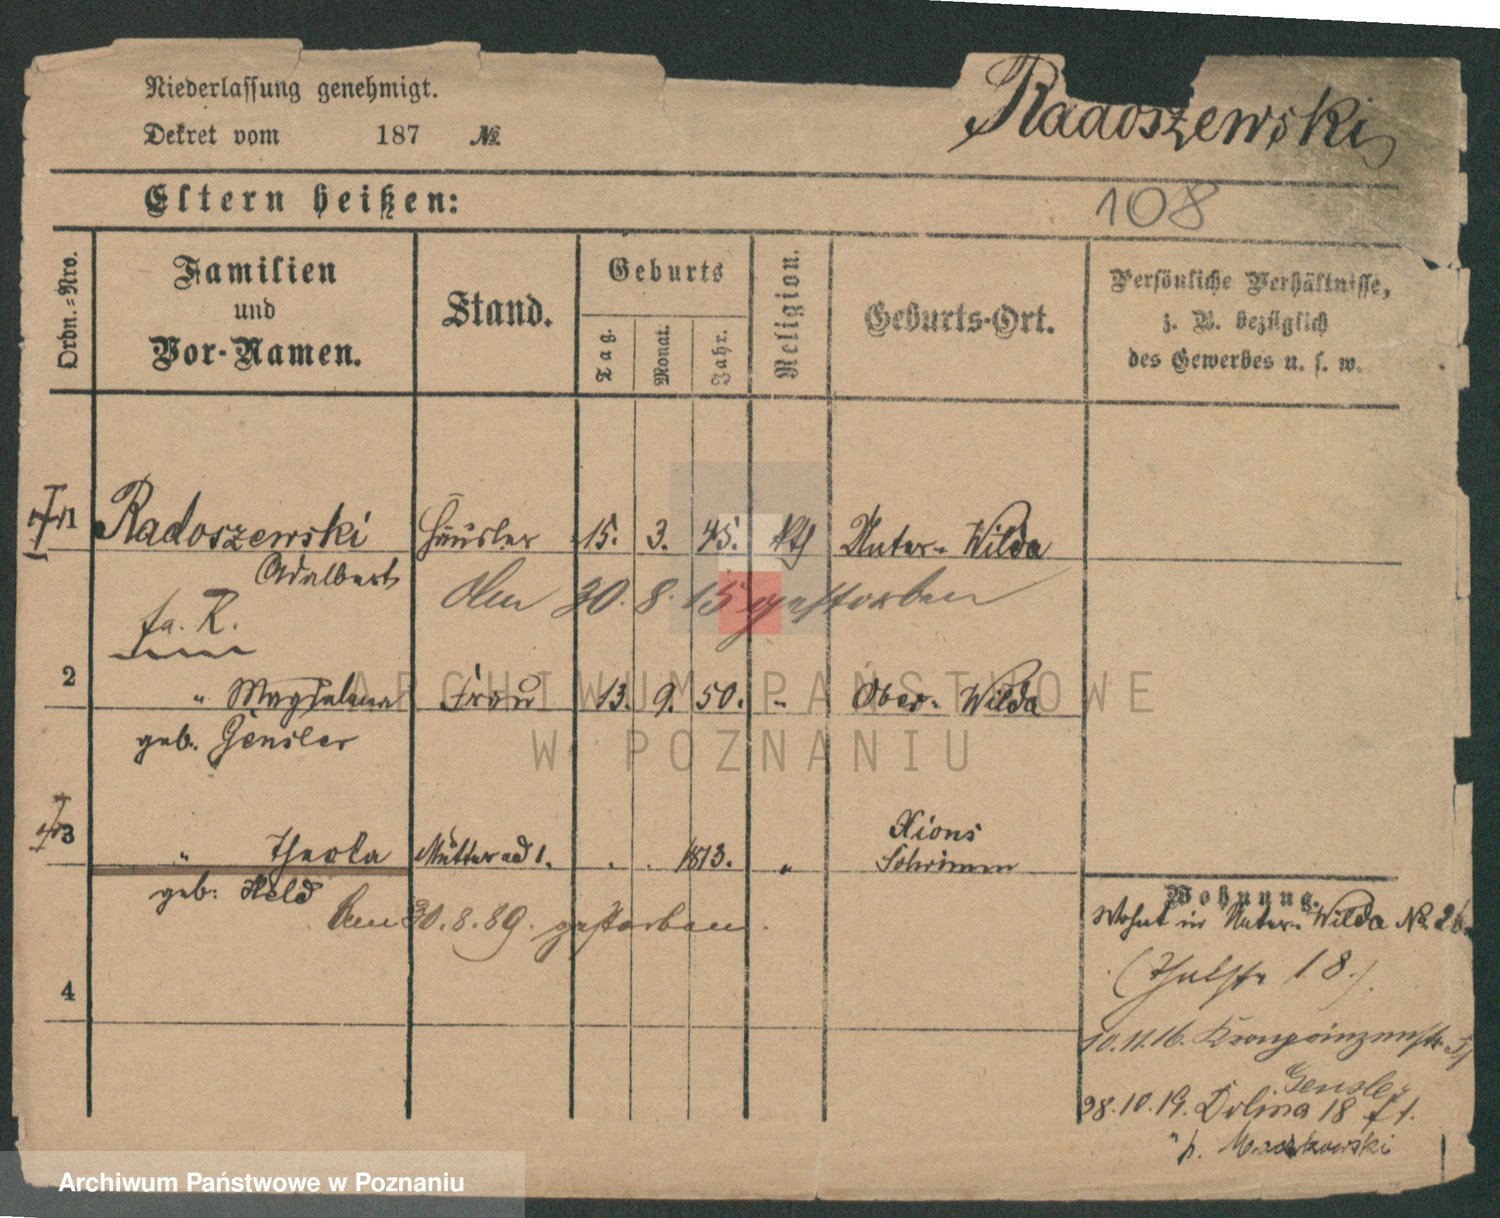 Niederlassung genehmigt.
Dekret vom 187 №
Radoszewski
Eltern heißen:
108
Ordn.=Nro.
Familien
und
Vor-Namen.
Stand.
Geburts
Tag.
Monat.
Jahr.
Religion.
Geburts-Ort.
Persönliche Verhältnisse,
z. B. bezüglich
des Gewerbes u. s. w.
1 Radoszewski Häusler 15. 3. 45. kth Unter-Wilda
Adalbert
Am 30. 8. 15 gestorben
fa. R.
2 " Magdalena Frau 13. 9. 50. " Ober-Wilda
geb. Gensler
3 " Thecla Mutter ad 1. . . 1813. " Xions
Schrimm
geb: Held
Am 30.8.89. gestorben.
4
Wohnung.
Wohnt in Unter-Wilda № 26
(Thalstr 18.)
10.11.16. Kronprinzenstr.
Gensler
28.10.19. Dolina 18
" p. Maćkowski
ARCHIWUM PAŃSTWOWE
W POZNANIU
Archiwum Państwowe w Poznaniu